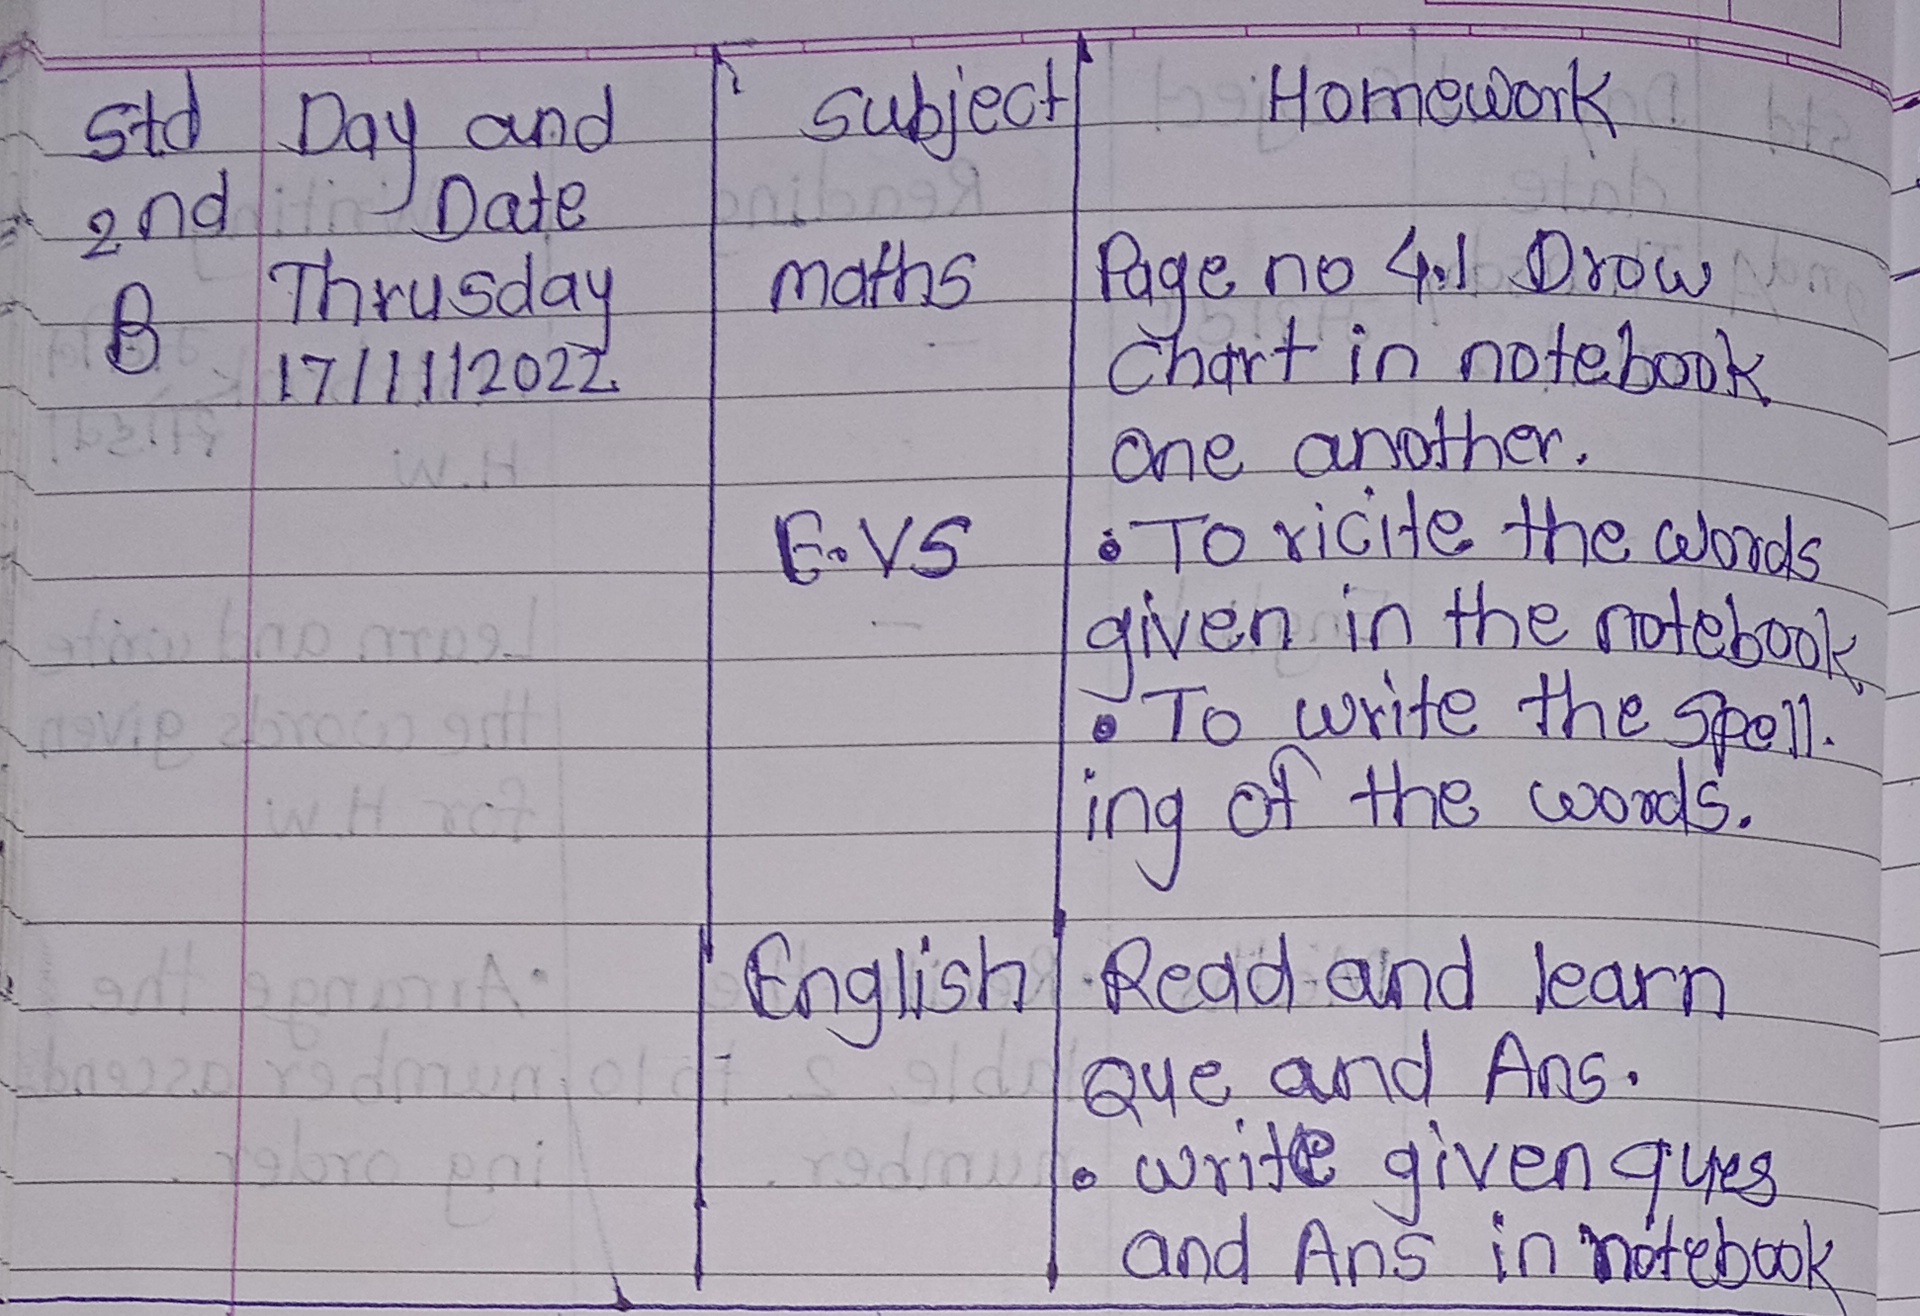 Std Day and subject Homework
2nd Date
B Thrusday maths Page no 4.1 Drow
17/11/2022 Chart in notebook
one another.
E.VS • To ricite the words
given in the notebook
• To write the spell.
ing of the words.
English Read and learn
Que and Ans.
• write given ques
and Ans in notebook